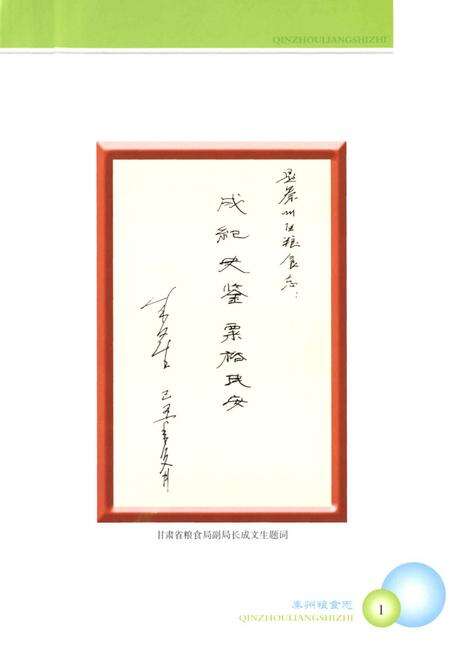 QINZHOULIANGSHIZHI
题秦州区粮食志：
成纪史鉴 粟裕民安
成文生 己丑
甘肃省粮食局副局长成文生题词
秦州粮食志
QINZHOULIANGSHIZHI
1